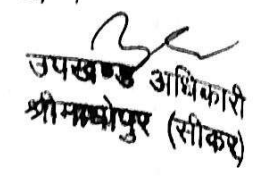 उपखण्ड अधिकारी
श्रीमाधोपुर (सीकर)